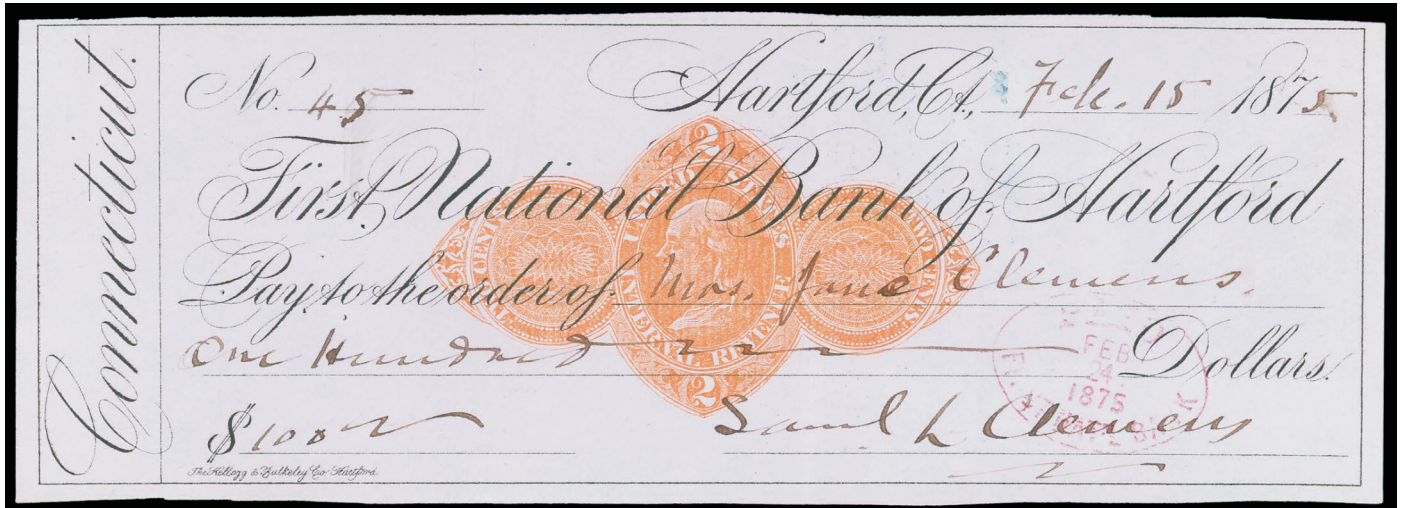 Connecticut.
No. 45 Hartford, Ct., Feb. 15 1875
First National Bank of Hartford
Pay to the order of Mrs. Jane Clemens.
One Hundred Dollars.
$100
Saml L Clemens
The Kellogg & Bulkeley Co. Hartford
2
UNITED STATES
INTERNAL REVENUE
2
TWO CENTS
FEB
24
1875